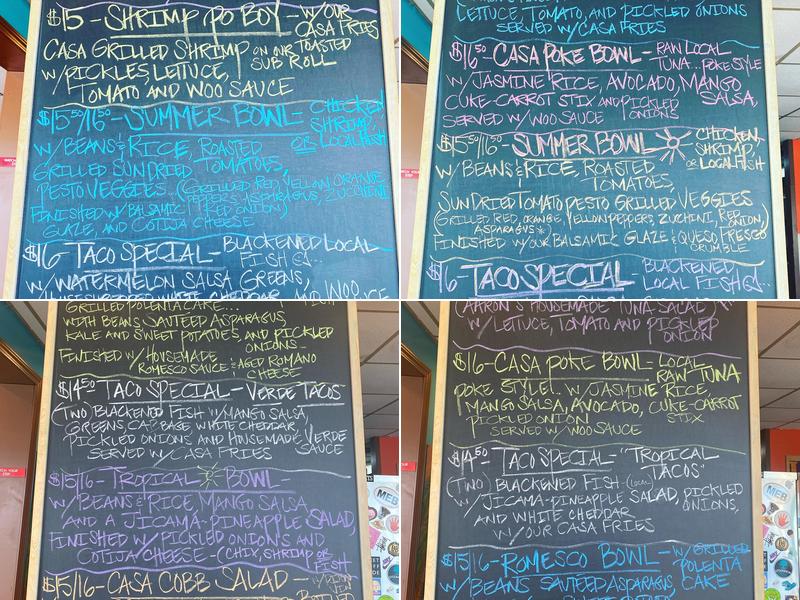 $15 - SHRIMP PO BOY - W/OUR
CASA FRIES
CASA GRILLED SHRIMP ON OUR TOASTED
SUB ROLL
W/PICKLES, LETTUCE,
TOMATO AND WOO SAUCE
$15.50/16.50 - SUMMER BOWL - CHICKEN,
SHRIMP,
OR LOCAL FISH
W/ BEANS & RICE, ROASTED
GRILLED SUNDRIED TOMATOES,
PESTO VEGGIES. (GRILLED RED, YELLOW, ORANGE
PEPPERS, ASPARAGUS, ZUCCHINI
RED ONION)
FINISHED W/ BALSAMIC
GLAZE, AND COTIJA CHEESE
$16 - TACO SPECIAL - BLACKENED LOCAL
FISH
W/ WATERMELON SALSA, GREENS,
WHITE CHEDDAR
LETTUCE, TOMATO, AND PICKLED ONIONS
SERVED W/CASA FRIES
$16.50 - CASA POKE BOWL - RAW LOCAL
TUNA... POKE STYLE
W/JASMINE RICE, AVOCADO, MANGO
SALSA,
CUKE-CARROT STIX AND PICKLED
ONIONS
SERVED W/ WOO SAUCE
$15.50/16.50 - SUMMER BOWL - CHICKEN,
SHRIMP,
OR LOCAL FISH
W/ BEANS & RICE, ROASTED
TOMATOES,
SUNDRIED TOMATO PESTO GRILLED VEGGIES
(GRILLED RED, ORANGE, YELLOW PEPPERS, ZUCHINI, RED
ONION)
ASPARAGUS
FINISHED W/OUR BALSAMIC GLAZE & QUESO FRESCO
CRUMBLE
$16 - TACO SPECIAL - BLACKENED
LOCAL FISH
GRILLED POLENTA CAKE...
WITH BEANS, SAUTEED ASPARAGUS,
KALE AND SWEET POTATOES, AND PICKLED
ONIONS -
FINISHED W/HOUSEMADE
ROMESCO SAUCE & AGED ROMANO
CHEESE
$14.50 - TACO SPECIAL - VERDE TACOS
(TWO BLACKENED FISH W/MANGO SALSA,
GREENS, CABBAGE, WHITE CHEDDAR,
PICKLED ONIONS AND HOUSEMADE VERDE
SAUCE
SERVED W/ CASA FRIES
$15/16 - TROPICAL BOWL -
W/ BEANS & RICE, MANGO SALSA
AND A JICAMA-PINEAPPLE SALAD,
FINISHED W/ PICKLED ONIONS AND
COTIJA CHEESE - (CHIX, SHRIMP OR
FISH
$15/16 - CASA COBB SALAD -
(AARON'S HOUSEMADE TUNA SALAD)
W/ LETTUCE, TOMATO AND PICKLED
ONION
$16 - CASA POKE BOWL - LOCAL
RAW TUNA
POKE STYLE! W/ JASMINE RICE,
MANGO SALSA, AVOCADO, CUKE-CARROT
STIX
PICKLED ONION
SERVED W/ WOO SAUCE
$14.50 - TACO SPECIAL - "TROPICAL
TACOS"
(TWO) BLACKENED FISH - (LOCAL)
W/ JICAMA-PINEAPPLE SALAD, PICKLED
ONIONS,
AND WHITE CHEDDAR
W/ YOUR CASA FRIES
$15/16 - ROMESCO BOWL - W/ GRILLED
POLENTA
CAKE
W/ BEANS, SAUTEED ASPARAGUS,
MEB
MEB